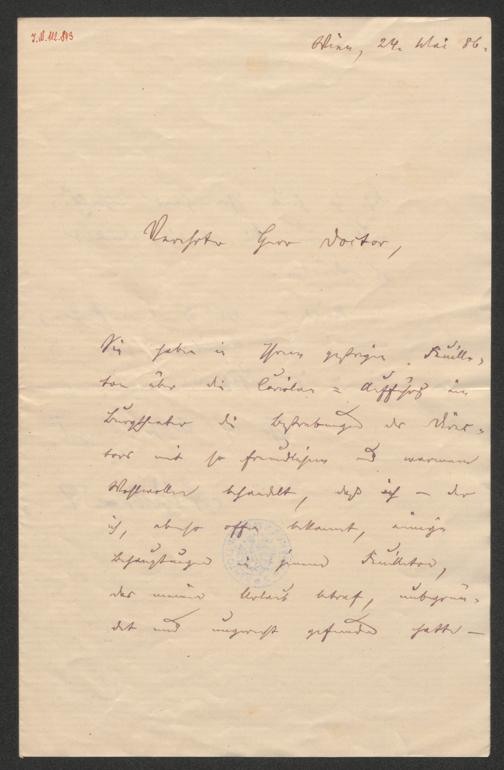 J.N. 111.893
Wien, 24. Mai 86.
Verehrter Herr Doctor,
Sie haben in Ihrem gestrigen Feuille-
ton über die Coriolan = Aufführg im
Burgtheater die Bestrebungen des Direc-
tors mit so freundlichem und warmem
Wohlwollen behandelt, daß ich – der
ich, ebenso offen bekannt, einige
Behauptungen in jenem Feuilleton,
das meine Arbeit betraf, unbegrün-
det und ungerecht gefunden hatte –